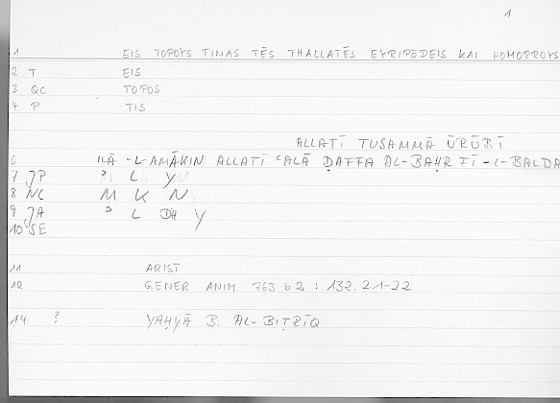 1
1 EIS TOPOYS TINAS TĒS THALLATĒS EYRIPŌDEIS KAI HOMORROYS
2 T EIS
3 QC TOPOS
4 P TIS
ALLATĪ TUSAMMĀ ŪRŪBĪ
6 ILĀ -L-AMĀKIN ALLATĪ ʿALĀ ḌAFFA AL-BAḤR FĪ -L-BALDA
7 JP ʾ L Y
8 NC M K N
9 JA ʾ L DH Y
10 SE
11 ARIST
12 GENER ANIM 763 b 2 : 132.21-22
14 ? YAḤYĀ B. AL-BIṬRĪQ